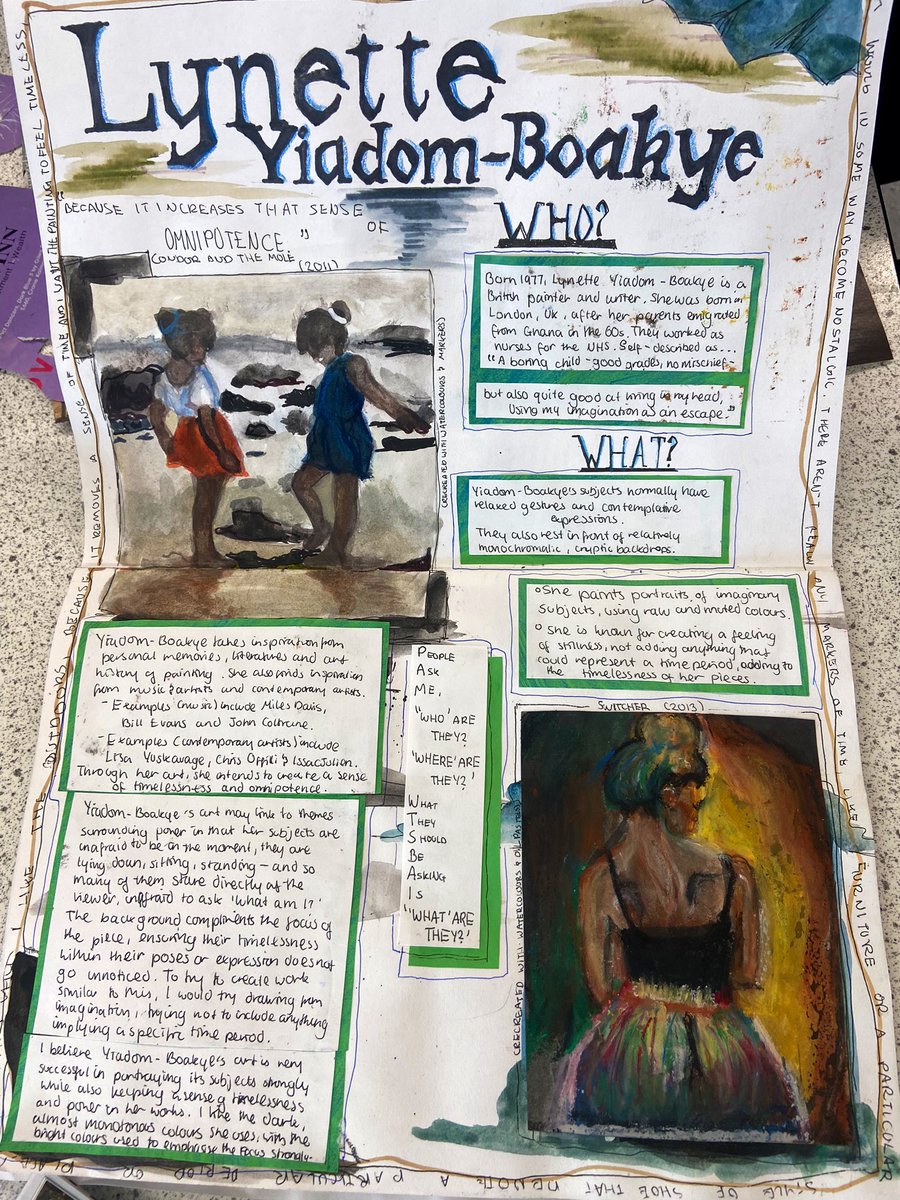 Lynette
Yiadom-Boakye
"BECAUSE IT INCREASES THAT SENSE
OF
OMNIPOTENCE."
CONDOR AND THE MOLE
(2011)
(RECREATED WITH WATERCOLOURS & MARKERS)
WHO?
Born 1977, Lynette Yiadom-Boakye is a
British painter and writer. She was born in
London, Uk, after her parents emigrated
from Ghana in the 60s. They worked as
nurses for the NHS. Self-described as...
"A boring child - good grades, no mischief -
but also quite good at living in my head,
Using my imagination as an escape."
WHAT?
Yiadom-Boakye's subjects normally have
relaxed gestures and contemplative
expressions.
They also rest in front of relatively
monochromatic, cryptic backdrops.
She paints portraits of imaginary
subjects, using raw and muted colours.
She is known for creating a feeling
of stillness, not adding anything that
could represent a time period, adding to
the timelessness of her pieces.
Yiadom-Boakye takes inspiration from
personal memories, literatures and art
history of painting. She also finds inspiration
from music artists and contemporary artists.
- Examples (music) include Miles Davis,
Bill Evans and John Coltrane.
- Examples (contemporary artists) include
Lisa Yuskavage, Chris Offili & Issac Julien.
Through her art, she intends to create a sense
of timelessness and omnipotence.
Yiadom-Boakye's art may link to themes
surrounding power in that her subjects are
unafraid to be in the moment, they are
lying down, sitting, standing - and so
many of them stare directly at the
viewer, unafraid to ask 'what am I?'
The background compliments the focus of
the piece, ensuring their timelessness
within their poses or expression does not
go unnoticed. To try to create work
similar to this, I would try drawing from
imagination, trying not to include anything
implying a specific time period.
I believe Yiadom-Boakye's art is very
successful in portraying its subjects strongly
while also keeping a sense of timelessness
and power in her works. I like the dark,
almost monotonous colours she uses, with the
bright colours used to emphasise the focus strongly.
PEOPLE
ASK
ME,
"WHO' ARE
THEY?
'WHERE' ARE
THEY?'
WHAT
THEY
SHOULD
BE
ASKING
IS
'WHAT' ARE
THEY?'
SWITCHER (2013)
(RECREATED WITH WATERCOLOURS & OIL PASTELS)
I LIKE THE OUTDOORS BECAUSE IT REMOVES A SENSE OF TIME AND I WANT THE PAINTING TO FEEL TIMELESS,
WOULD IN SOME WAY BECOME NOSTALGIC. THERE AREN'T REALLY ANY MARKERS OF TIME LIKE FURNITURE OR A PARTICULAR
STYLE OF SHOE THAT DENOTE A PARTICULAR PERIOD OR PLACE